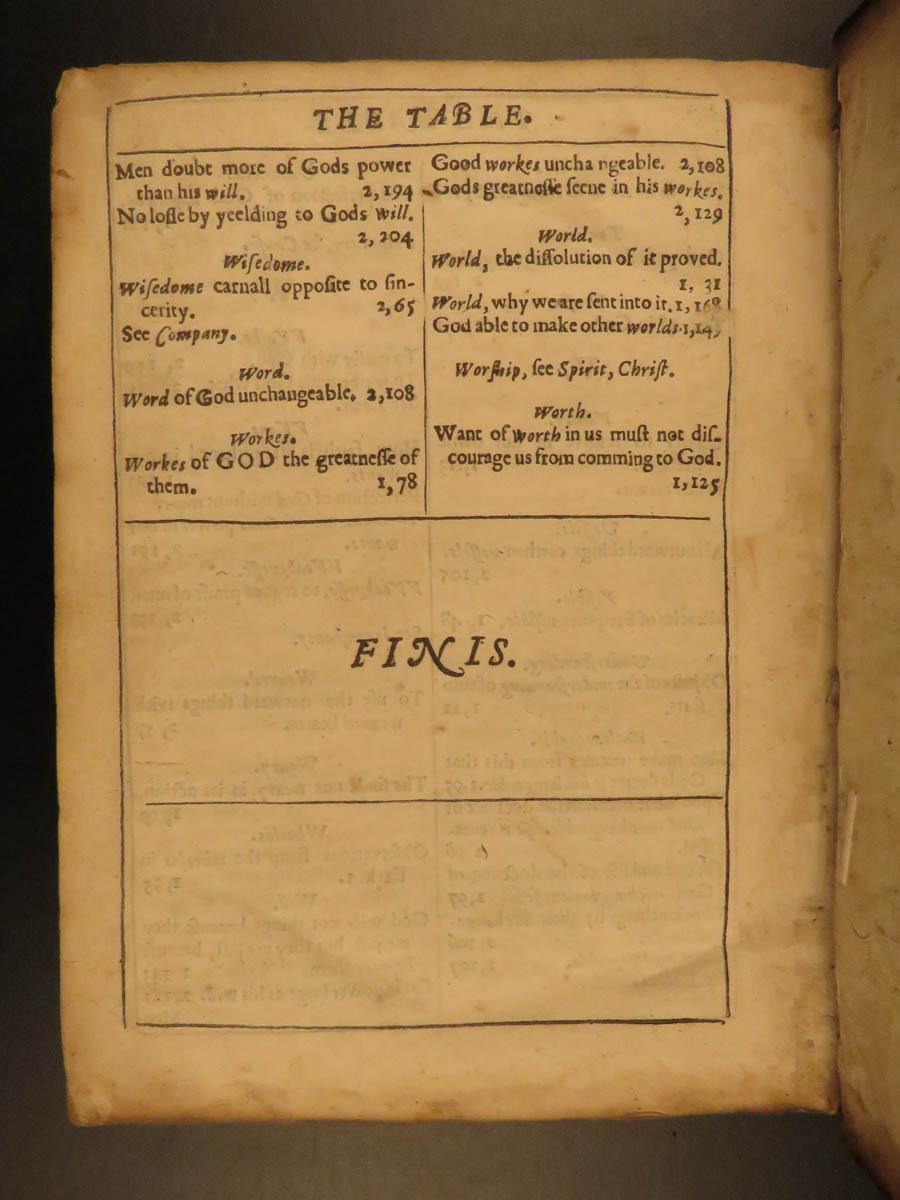 THE TABLE.
Men doubt more of Gods power
than his will. 2,194
No losse by yeelding to Gods will.
2,204
Wiſedome.
Wiſedome carnall oppoſite to ſin-
cerity. 2,65
See Company.
Word.
Word of God unchangeable. 2,108
Workes.
Workes of GOD the greatneſſe of
them. 1,78
Good workes uncha ngeable. 2,108
Gods greatneſſe ſeene in his workes.
2,129
World.
World, the diſſolution of it proved.
1, 31
World, why we are ſent into it.
God able to make other worlds.
Worſhip, ſee Spirit, Chriſt.
Worth.
Want of worth in us muſt not diſ-
courage us from comming to God.
1,125
FINIS.